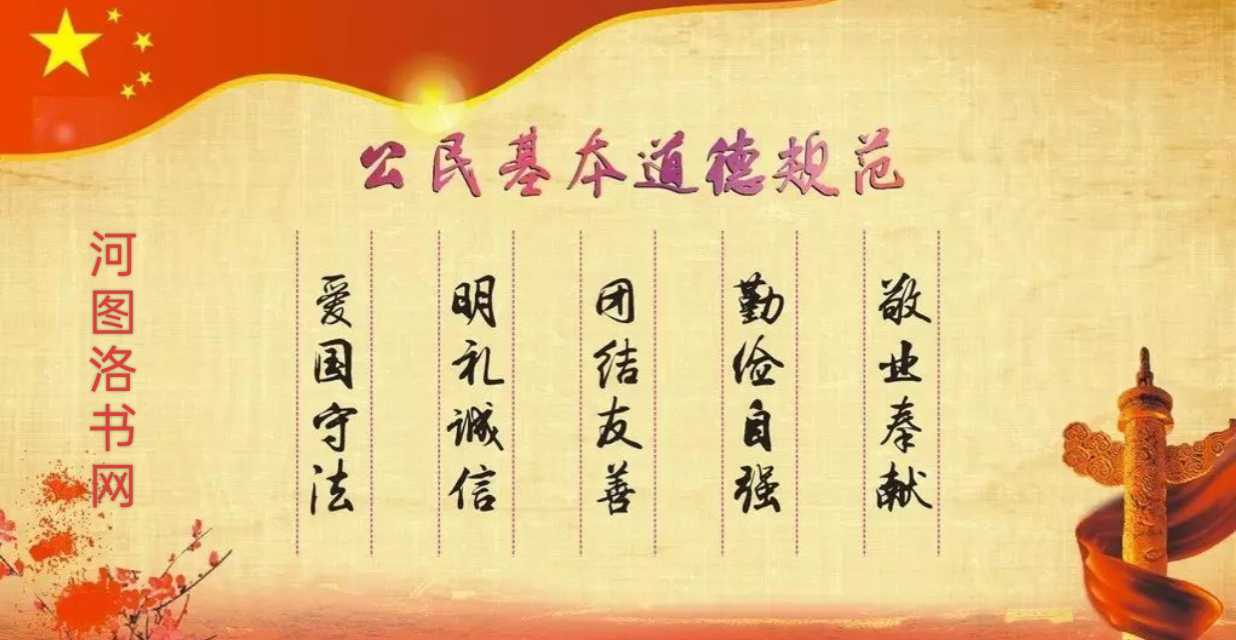 公民基本道德规范
河图洛书网
爱国守法
明礼诚信
团结友善
勤俭自强
敬业奉献